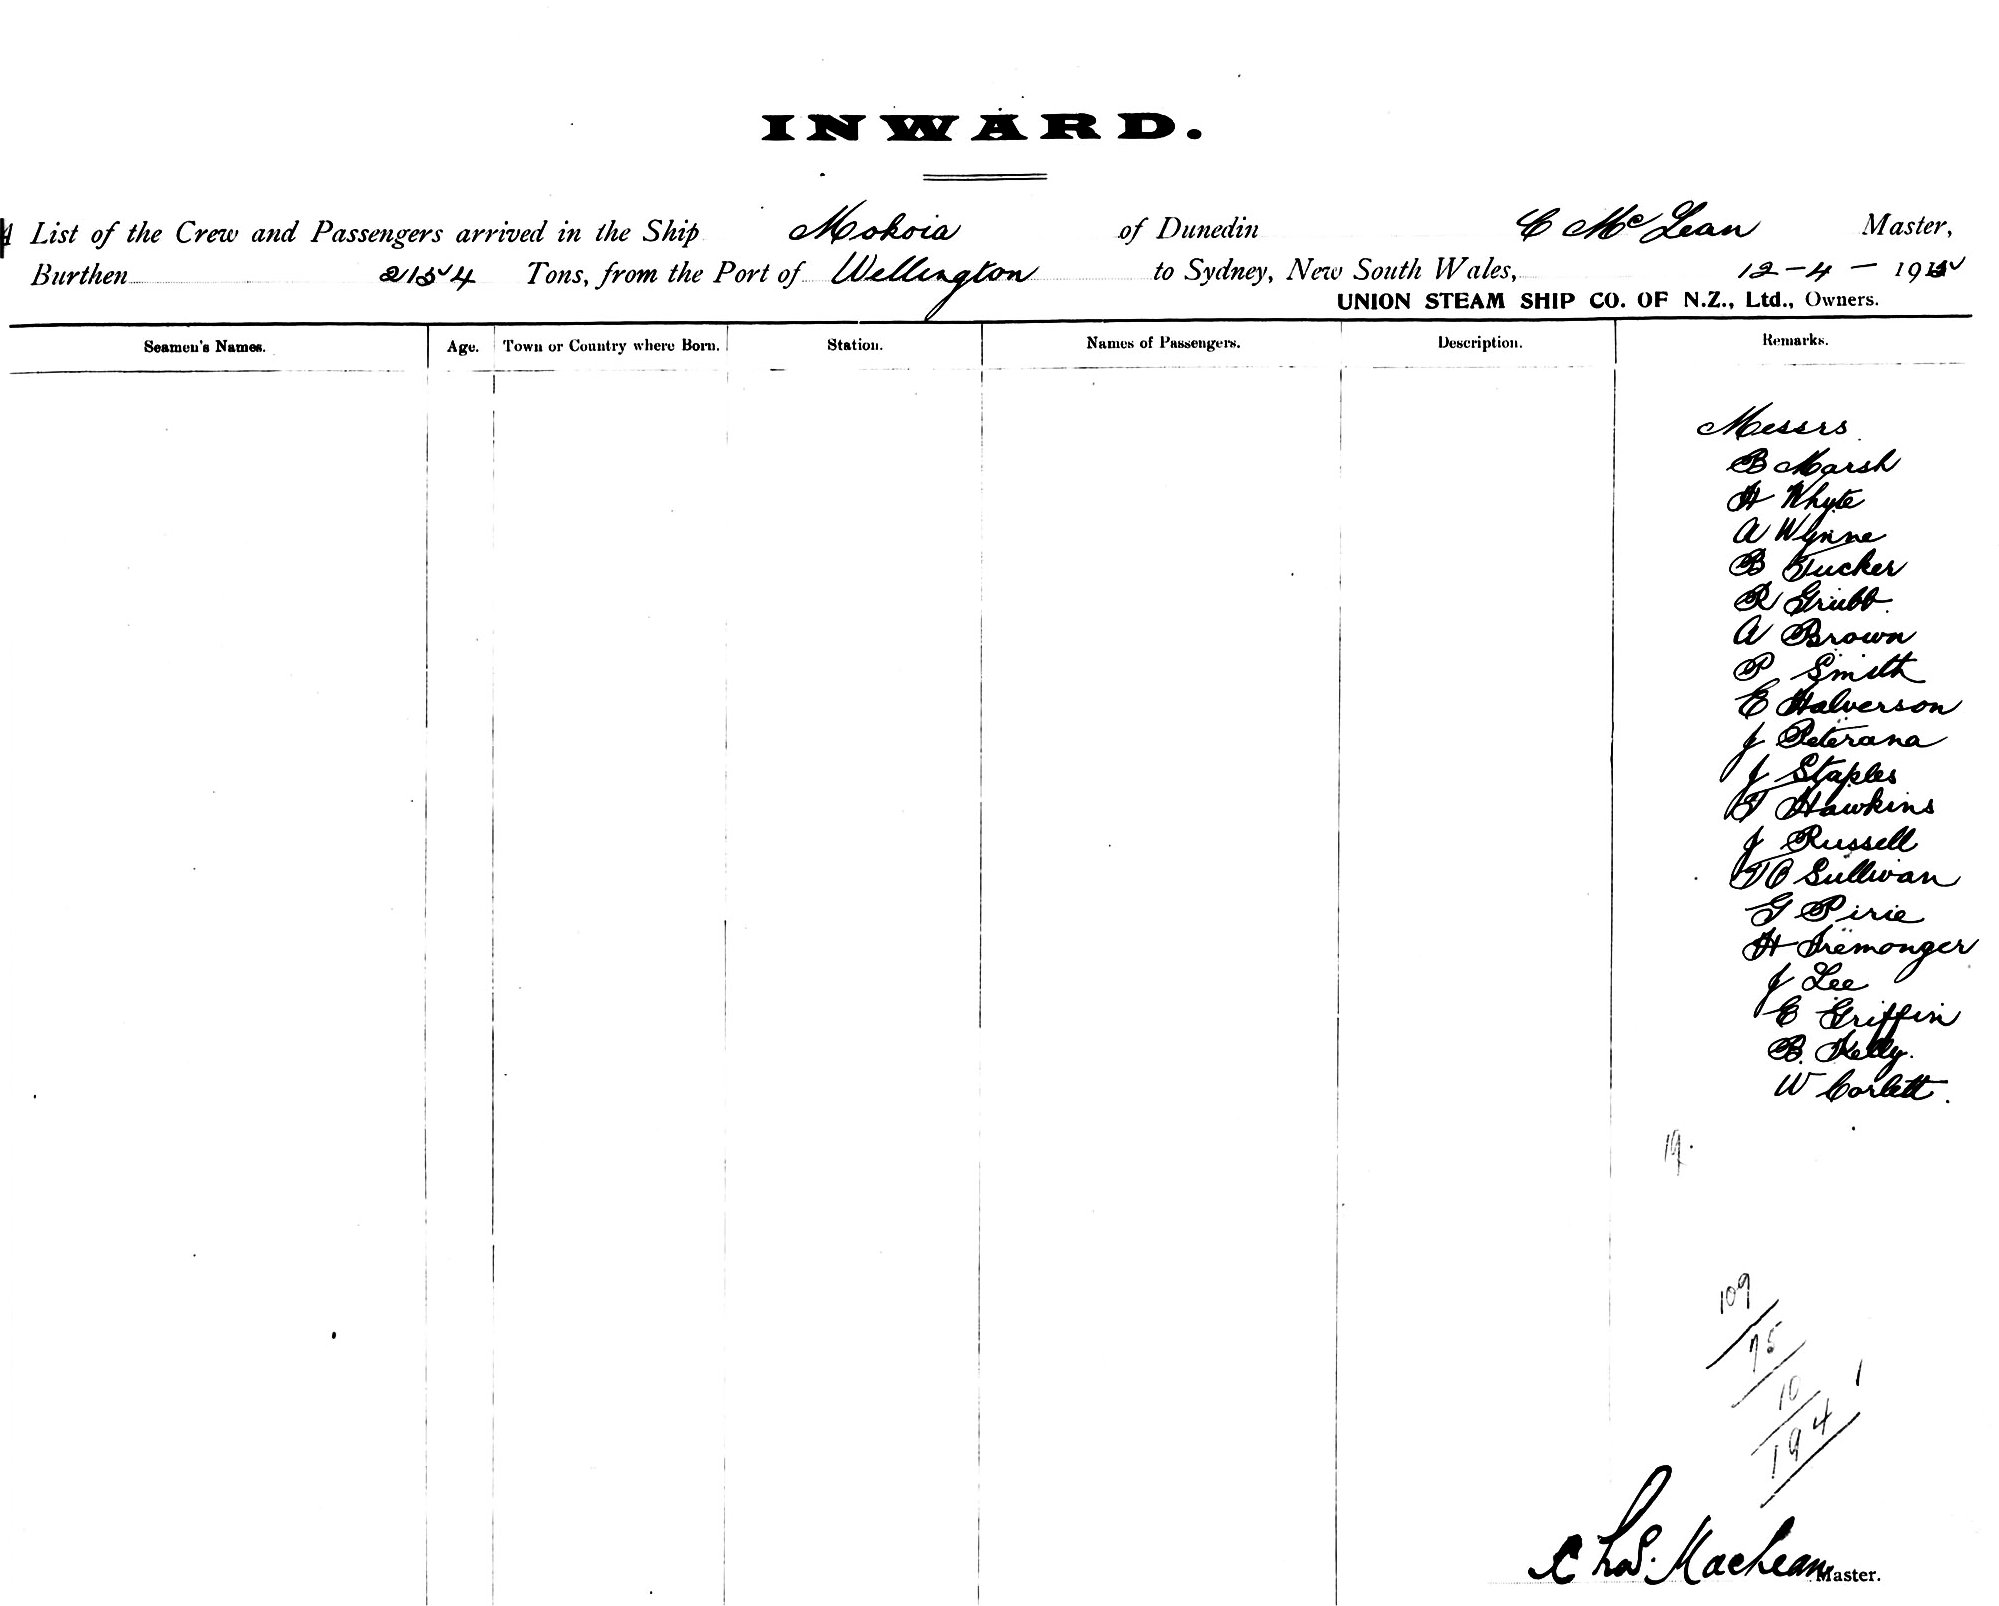 INWARD.
List of the Crew and Passengers arrived in the Ship Mokoia of Dunedin C McLean Master,
Burthen 2154 Tons, from the Port of Wellington to Sydney, New South Wales, 12-4-191
UNION STEAM SHIP CO. OF N.Z., Ltd., Owners.
Seamen's Names. Age. Town or Country where Born. Station. Names of Passengers. Description. Remarks.
Messrs
B Marsh
H Whyte
A Wynne
B Tucker
R Grubb.
A Brown
P Smith
E Halverson
J Peterana
J Staples
T Hawkins
J Russell
T O Sullivan
G Pirie
H Iremonger
J Lee
E Griffin
B. Kelly.
W Corlett.
19.
109
75
10
194
Chas. MacLean Master.